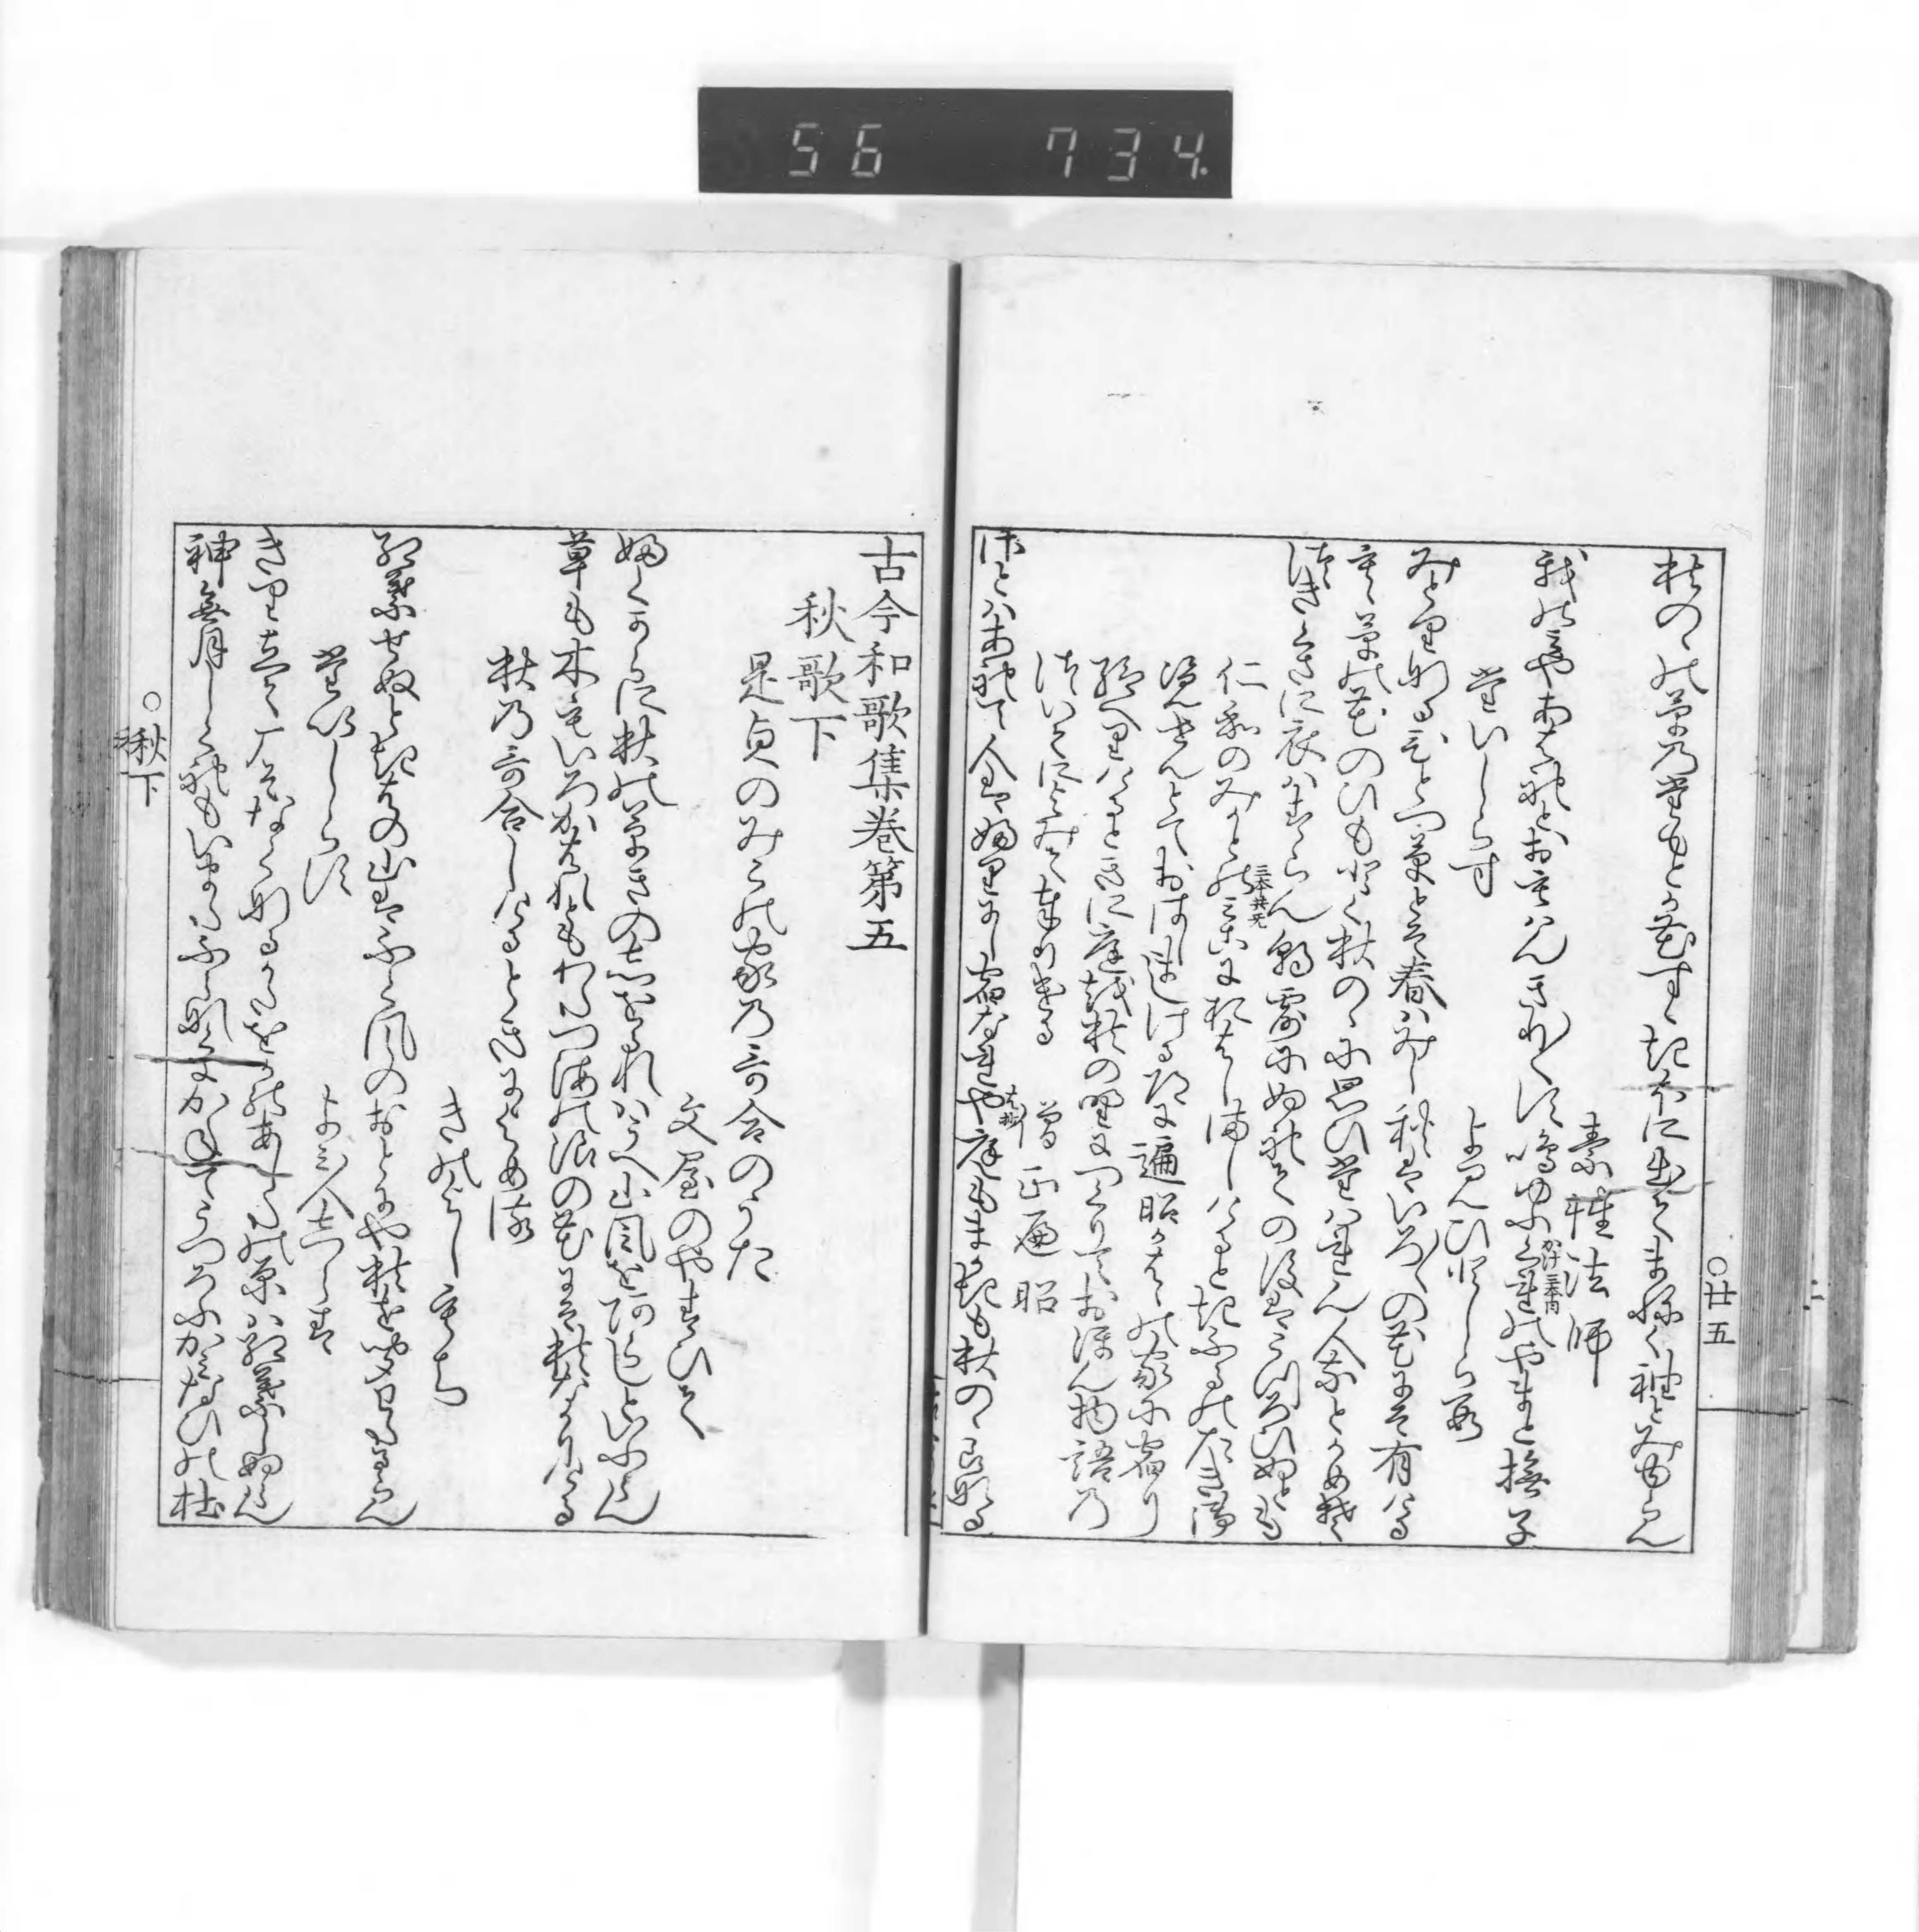 56 734.
○廿五
秋のゝの草のたもとか花すゝきほに出てまねく袖とみゆらん
素性法師
我のみやあはれとおもはんきり〱す鳴ゆふかけのやまと撫子
題しらす　よみ人しらす
みとりなるひとつ草とそ春はみし秋はいろ〱の花にそ有ける
もゝ草の花のひもとく秋のゝに思ひたはれん人なとかめそ
つきくさに衣はすらん朝露にぬれての後はうつろひぬとも
三本共无
仁和のみかとのみこにおはしましけるときふるのたき御
覧せんとておはしましける道に遍昭かはゝの家に宿り
給へりけるときに庭を秋の野につくりておほん物語の
ついてによみて奉りける
僧正遍昭
さとはあれて人はふりにし宿なれや庭もまかきも秋のゝらなる
古今和歌集巻第五
秋歌下
是貞のみこの家の哥合のうた
文屋のやすひて
ふくからに秋の草きのしほるれはうへ山風をあらしといふらん
草も木もいろかはれともわたつ海の浪の花にそ秋なかりける
秋の哥合しけるときによめる
きのよしもち
紅葉せぬときはの山はふく風のおとにや秋を聞わたるらん
題しらす
よみ人しらす
きり立て厂そなくなるかた岡のあしたの原は紅葉しぬらん
神無月しくれもいまたふらなくにかねてうつろふかみなひの杜
○秋下